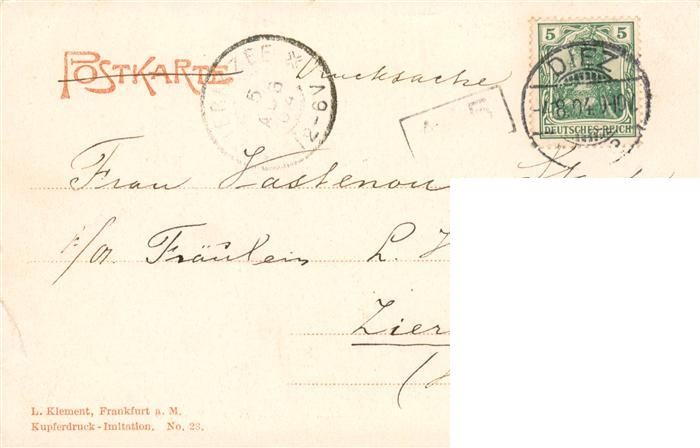 POSTKARTE Drucksache
5 5
DIEZ
DEUTSCHES REICH
5
AUG
04
Frau Vastenou
Fräulein L.
Zier
L. Klement, Frankfurt a. M.
Kupferdruck-Imitation. No. 23.